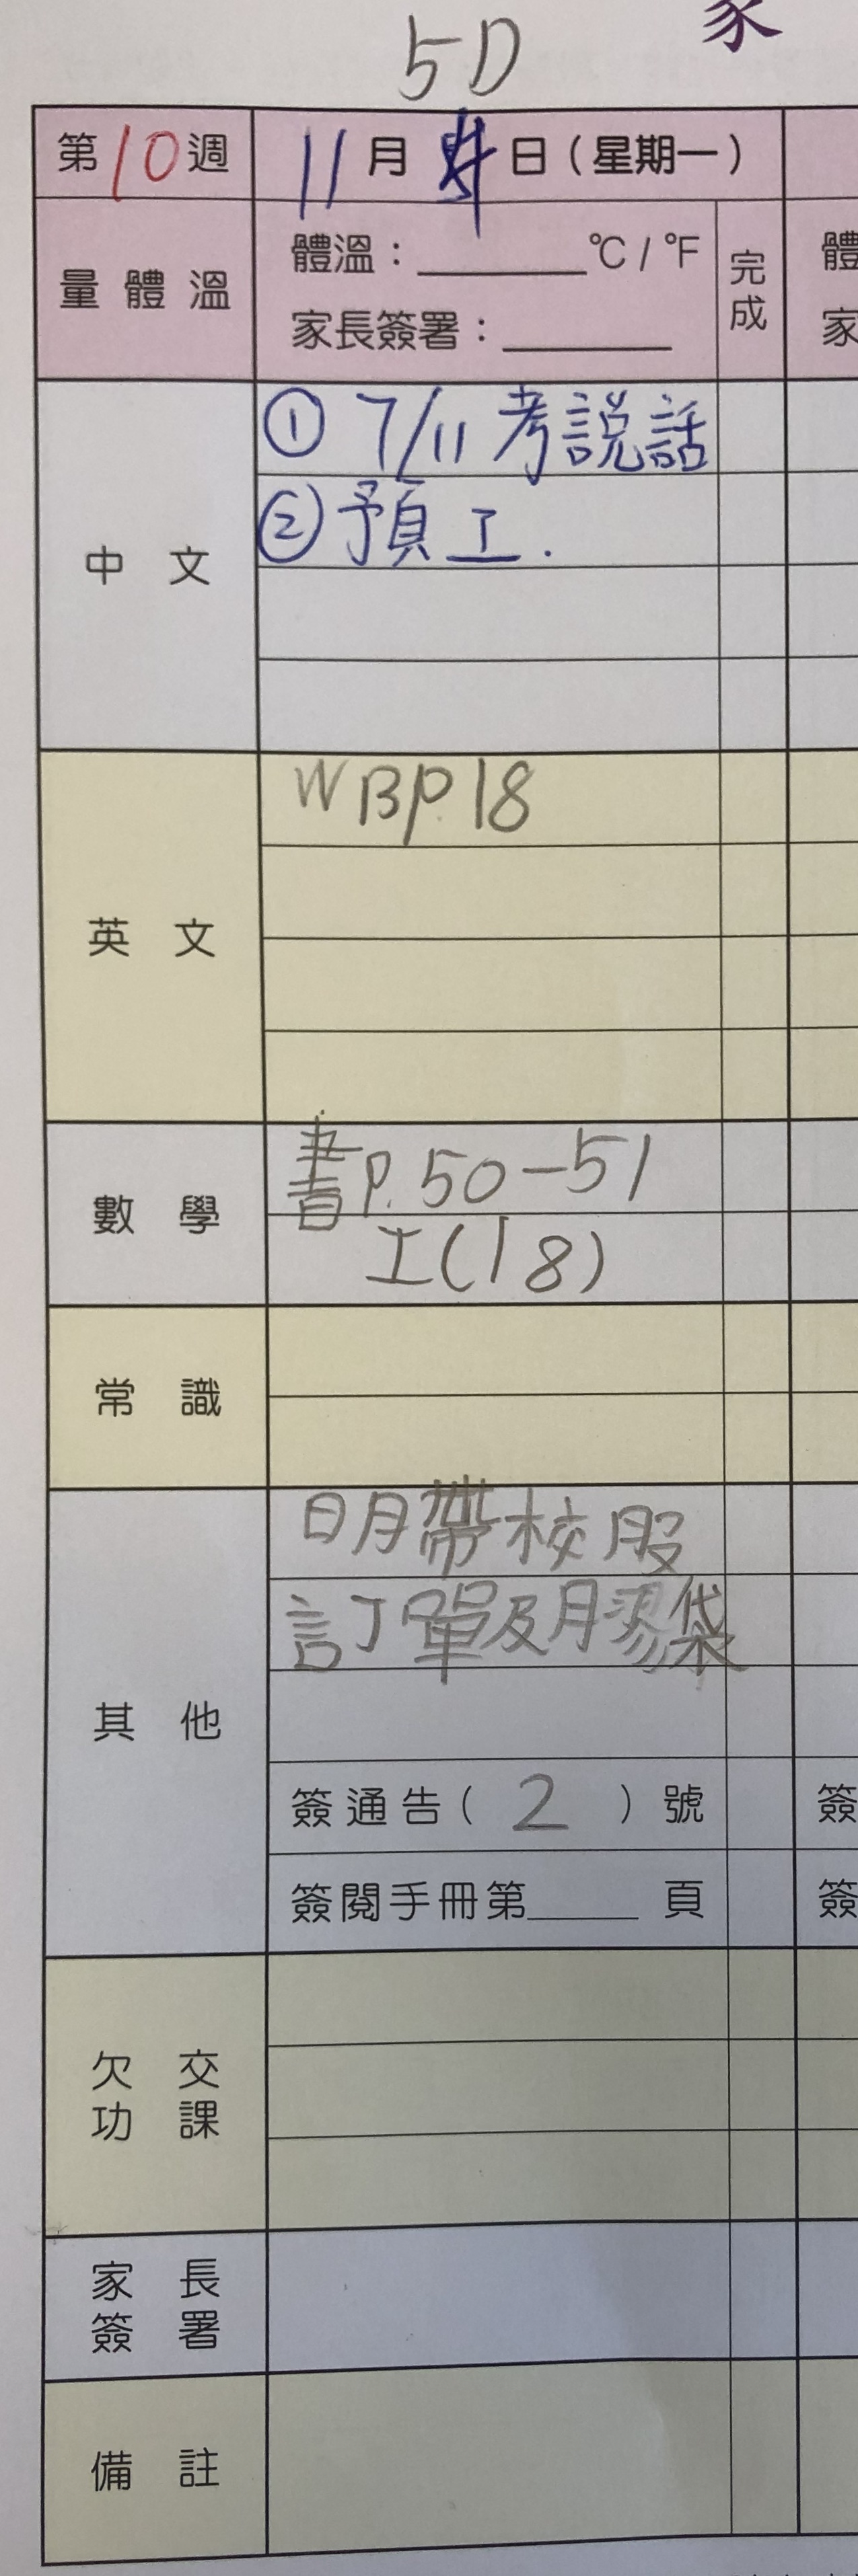 家
5D
第10週 11月4日(星期一)
量體溫 體溫:______℃/℉ 完成 體
家長簽署:______ 家
中文 ① 7/11 考說話
② 預工.
英文 WBP.18
數學 書P.50-51
工(18)
常識
其他 日月帶校服
訂單及月湯袋
簽通告( 2 )號 簽
簽閱手冊第____頁 簽
欠交功課
家長簽署
備註